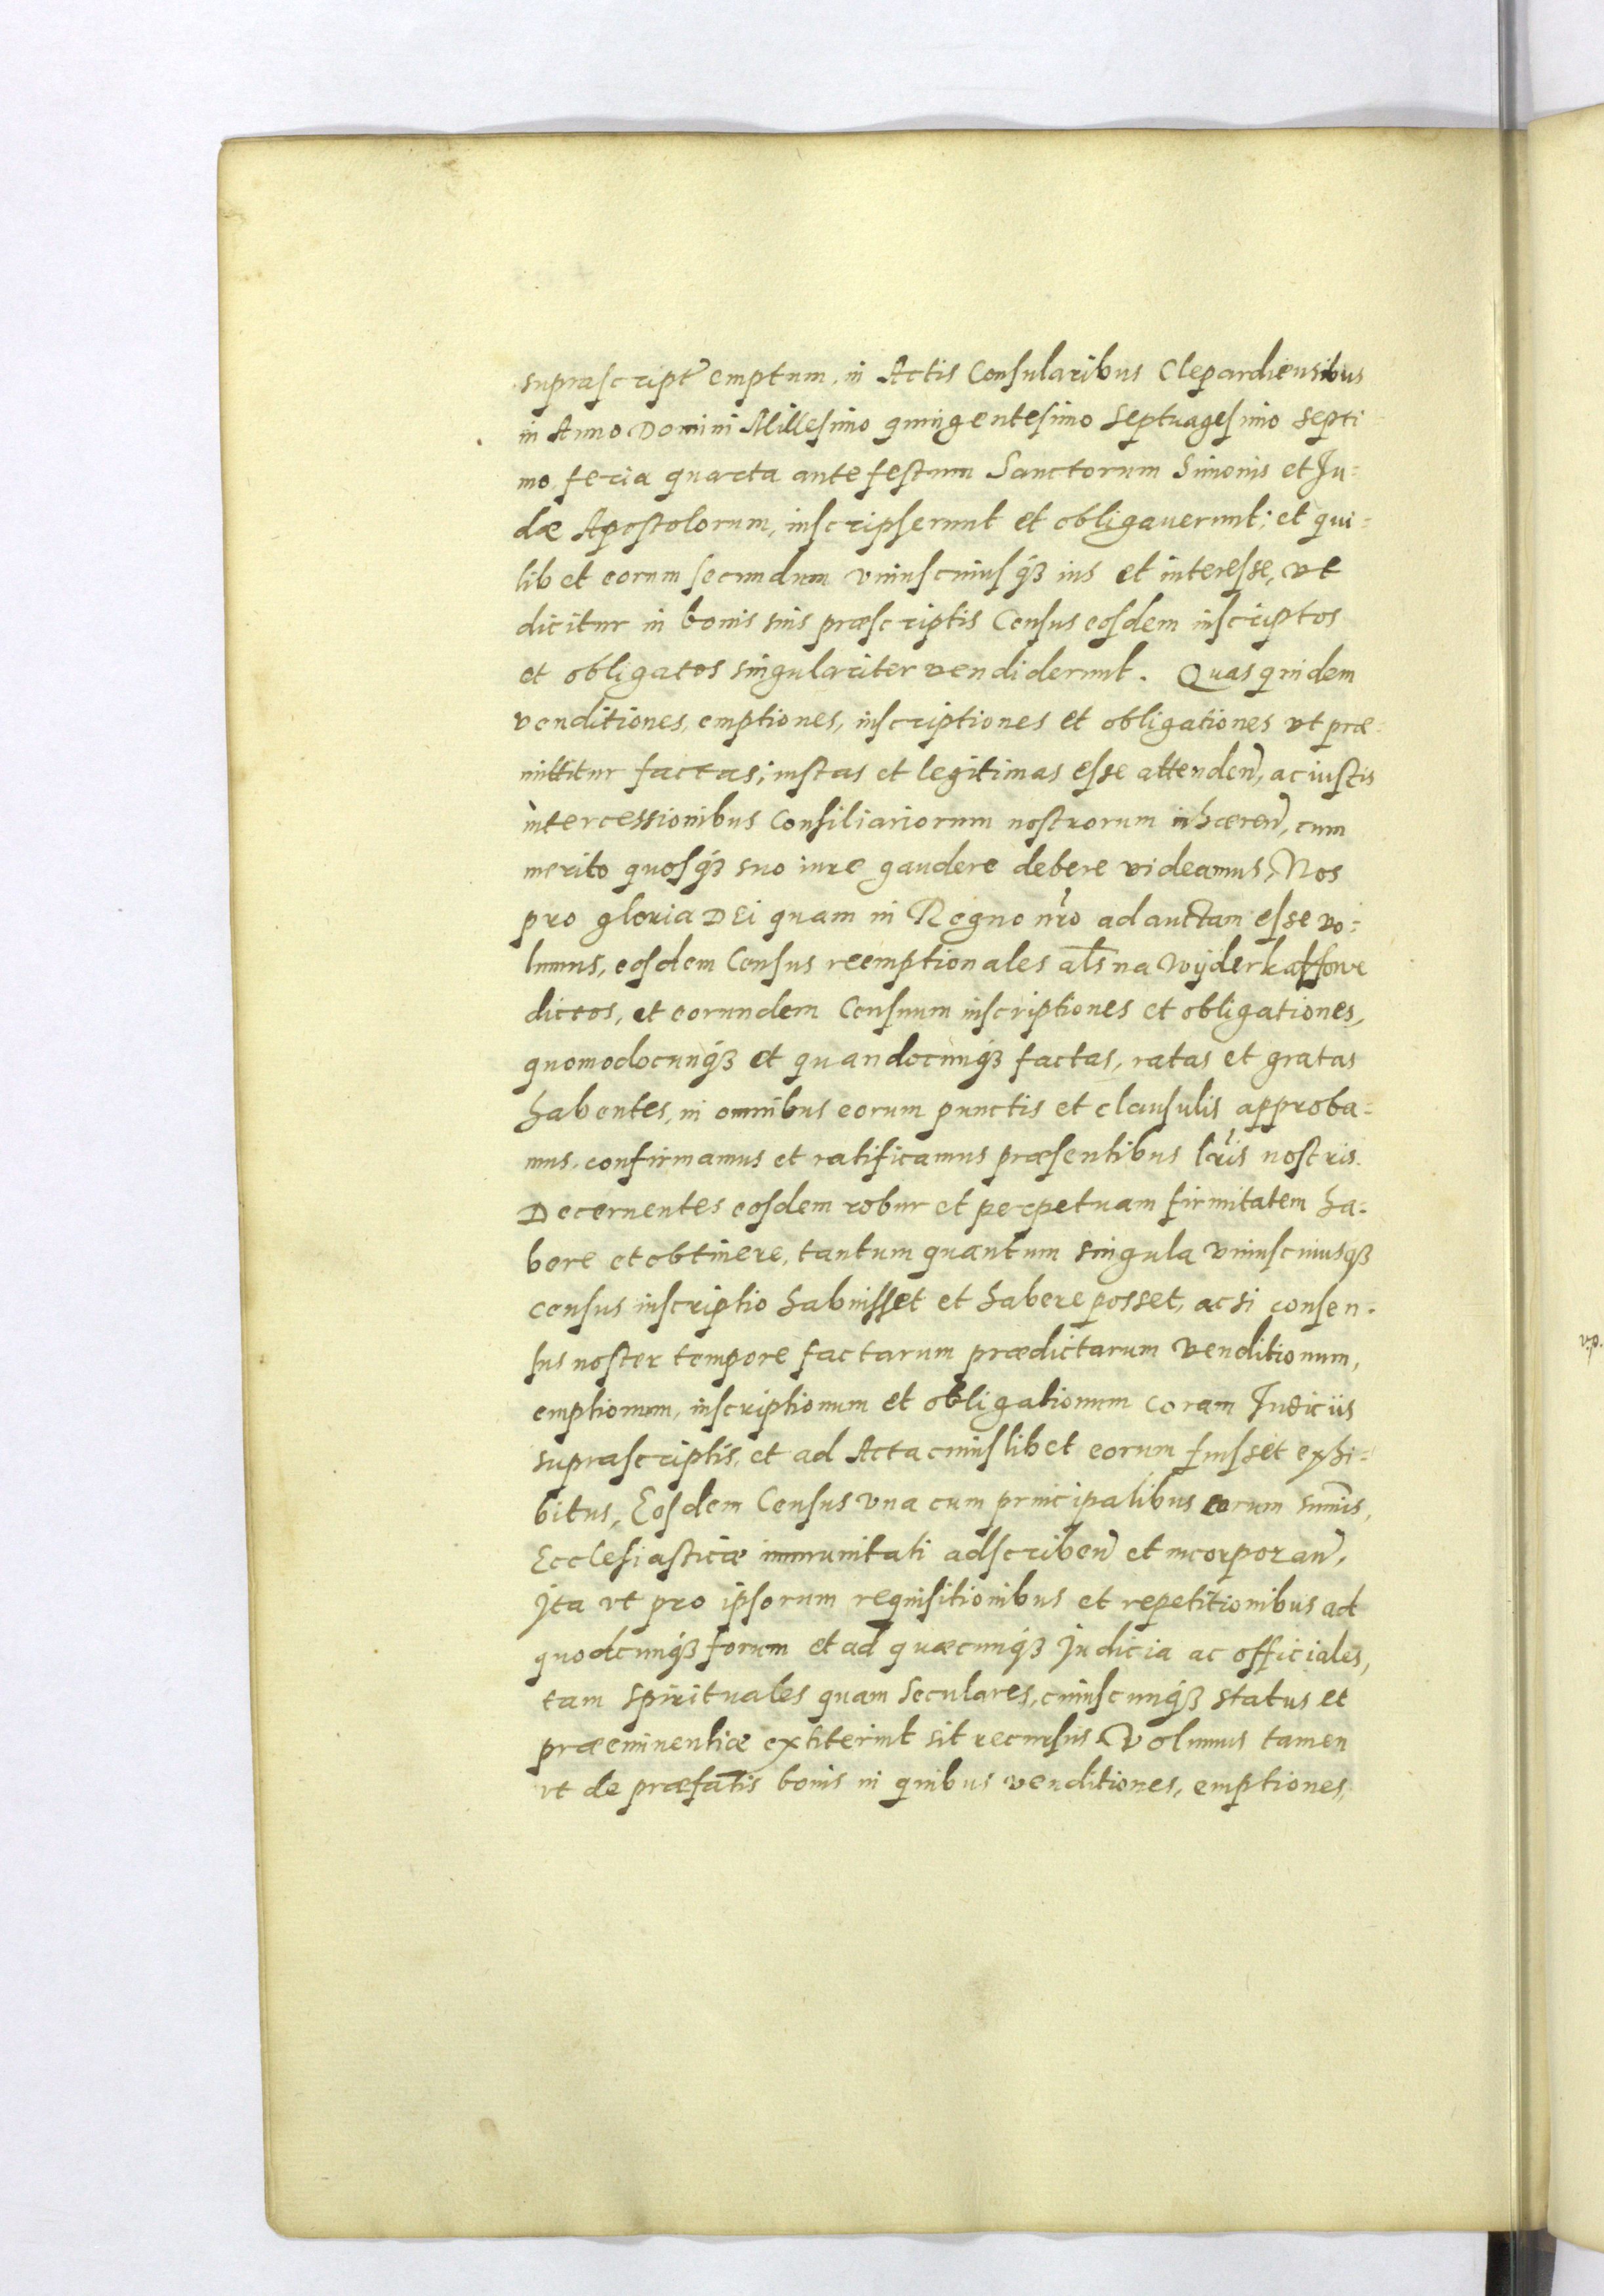 suprascript emptum, in Actis Consularibus Clepardiensibus
in Anno Domini Millesimo quingentesimo Septuagesimo septi
mo feria quarta ante festum Sanctorum Simonis et Ju=
dæ Apostolorum, inscripserunt et obligauerunt; et qui=
libet eorum secundum vniuscuiusq3 ius et interesse, vt
dicitur in bonis suis præscriptis Census eosdem inscriptos
et obligatos singulariter vendiderunt. Quas quidem
venditiones, emptiones, inscriptiones et obligationes vt præ=
mittitur factas; iustas et legitimas esse attenden̄, ac iustis
intercessionibus Consiliariorum nostrorum inhæren̄, cum
merito quosq3 suo iure gaudere debere videamus, Nos
pro gloria DEi quam in Regno nr̄o adauctam esse vo=
lumus, eosdem Census reemptionales al̄s na Wÿderkaffowe
dictos, et eorundem Censuum inscriptiones et obligationes,
quomodocunq3 et quandocunq3 factas, ratas et gratas
habentes, in omnibus eorum punctis et clausulis approba=
mus, confirmamus et ratificamus præsentibus lr̄is nostris.
Decernentes eosdem robur et perpetuam firmitatem ha=
bere et obtinere, tantum quantum singula vniuscuiusq3
census inscriptio habuisset et habere posset, ac si consen=
sus noster tempore factarum prædictarum venditionum,
emptionum, inscriptionum et obligationum coram Judiciis
suprascriptis, et ad Acta cuiuslibet eorum fuisset exhi=
bitus, Eosdem Census vna cum principalibus eorum sum̄is,
Ecclesiasticæ immunitati adscriben̄ et incorporan̄,
Jta vt pro ipsorum requisitionibus et repetitionibus ad
quodcunq3 forum et ad quæcunq3 Judicia ac officiales,
tam spirituales quam seculares, cuiuscunq3 status et
præeminentiæ extiterint sit recursus. Volumus tamen
vt de præfatis bonis in quibus venditiones, emptiones,